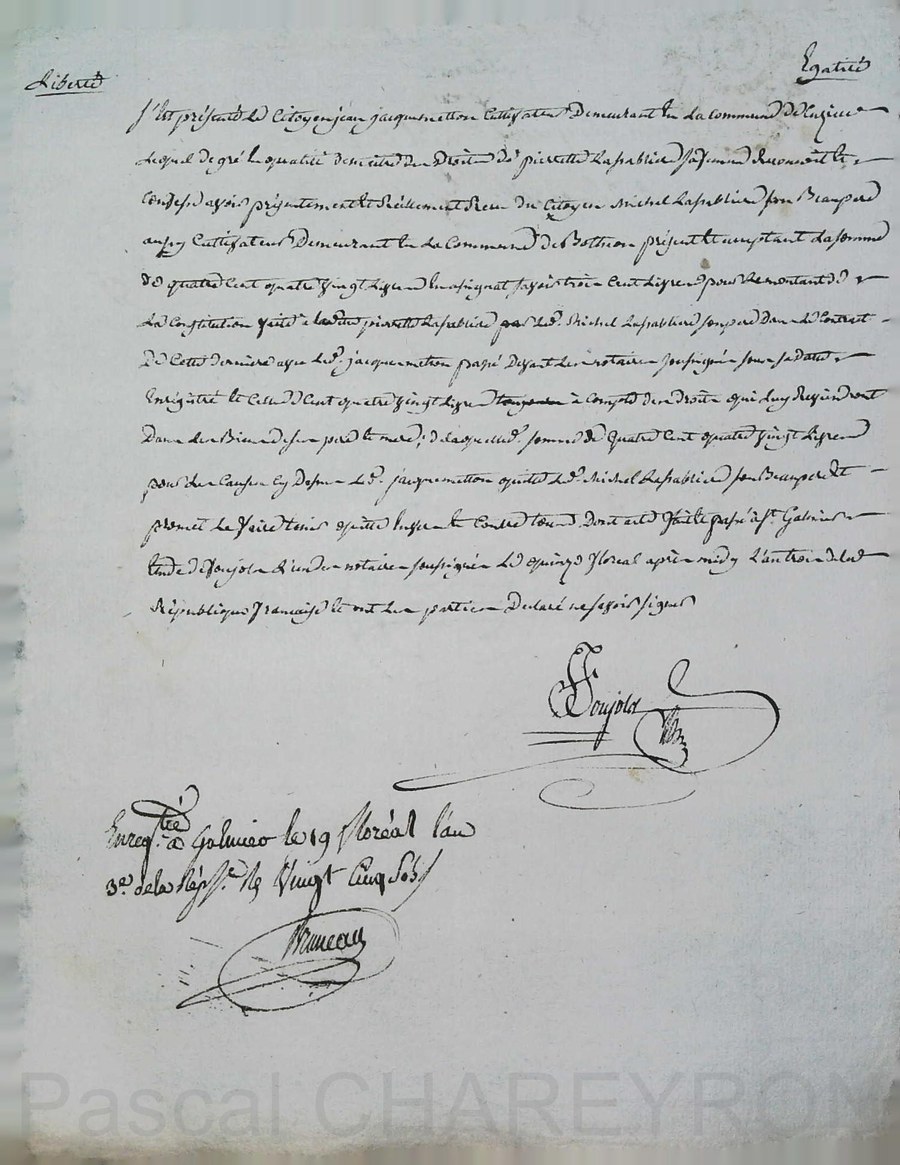 Liberté
Egalité
S'est présenté Le Citoyen jean jacques metton Cultivateur Demeurant En La Commune De Cuzieu
Lequel de gré En qualité de maitre Des Droits De pierrette Lapablier Sa femme Reconnoit Et
Confesse avoir présentement Et Réellement Reçu du Citoyen Michel Lapablier Son Beaupere
aussy Cultivateur Demeurant En La Commune De Bothéon présent Et acceptant La somme
de quatre Cent quatre vingt Livres En assignat, savoir trois Cent Livres pour Le montant de
La Constitution faite a Ladite pierrette Lapablier par Led. Michel Lapablier son pere Dans Le Contrat
De Cette Derniere avec Led. jacques metton passé Devant Les notaires soussignés sous sa Date
Enregistré Et Celle de Cent quatre vingt Livres a Compte Des Droits qui Luy Reviendront
Dans Les Biens de ses pere Et mere; de laquelle d. somme de quatre Cent quatre vingt Livres
pour Les Causes Cy Dessus Led. jacques metton quitte Led. Michel Lapablier son Beaupere Et
promet Le faire tenir quitte Envers Et Contre tous. Dont acte Fait Et passé à St. Galmier
Etude de Foujols L'un des notaires soussignés Le quinze floreal après midy L'an trois de La
République Française Et ont Les parties Declaré ne savoir signer
Foujols
Enregtré à Galmier le 19 floréal l'an
3e. de la Répque. Rs Vingt Cinq Sols
Bruneau
Pascal CHAREYRON